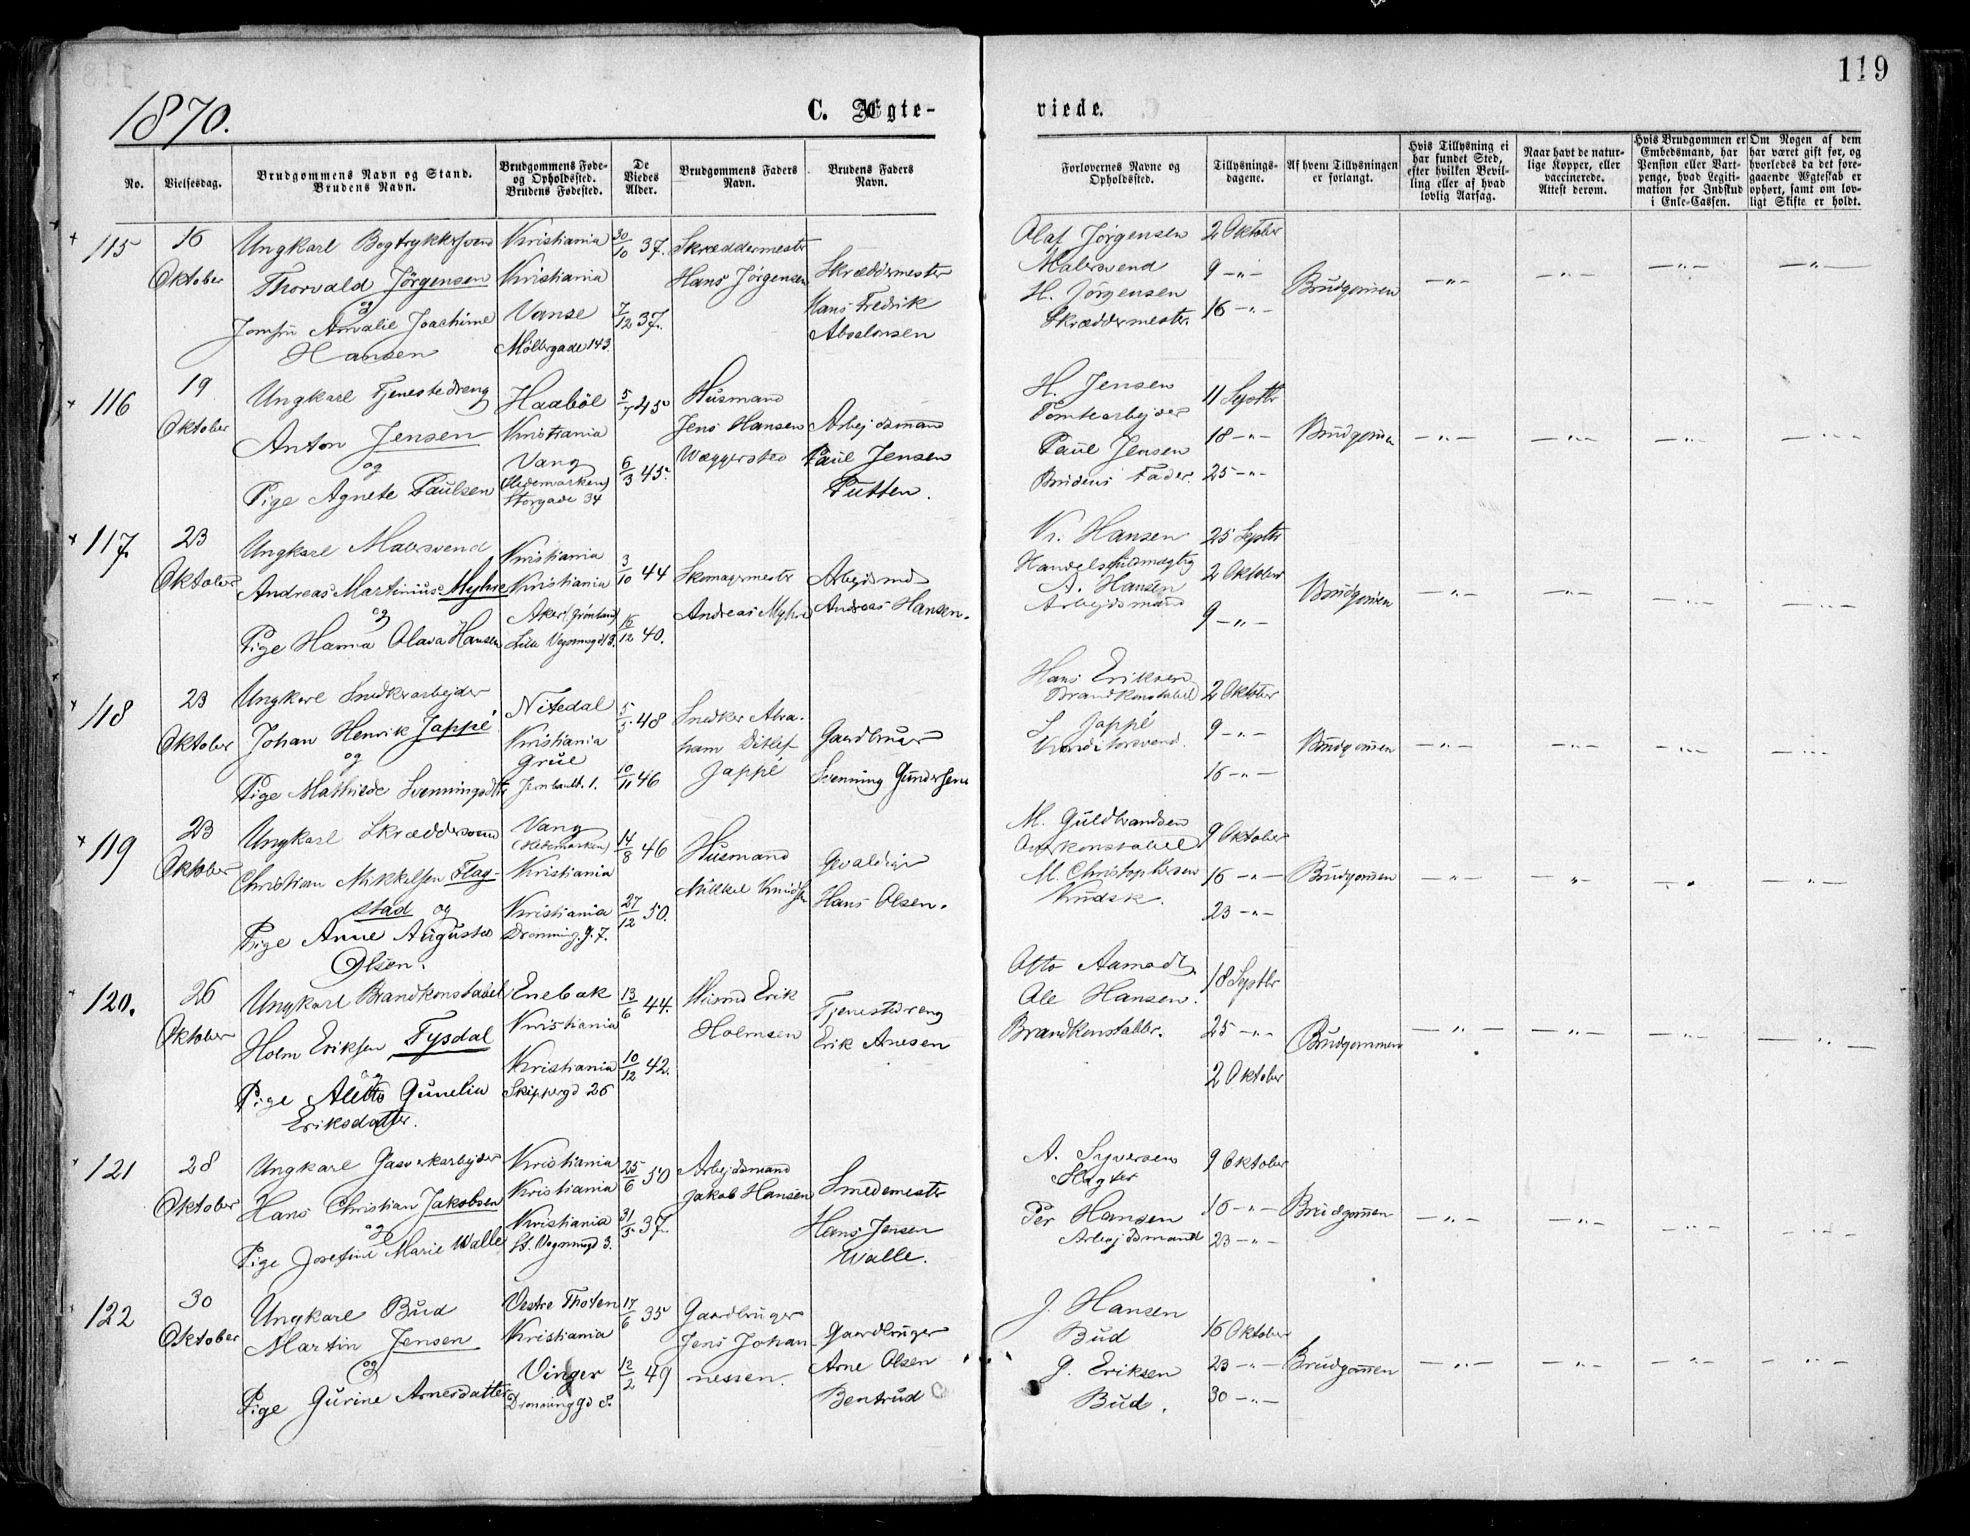 119
1870.
C. Ægte-
viede.
No.
Vielsesdag.
Brudgommens Navn og Stand.
Brudens Navn.
Brudgommens Føde-
og Opholdsted.
Brudens Fødested.
De
Viedes
Alder.
Brudgommens Faders
Navn.
Brudens Faders
Navn.
Forlovernes Navne og
Opholdsted.
Tillysnings-
dagene.
Af hvem Tillysningen
er forlangt.
Hvis Tillysning ei
har fundet Sted,
efter hvilken Bevil-
ling eller af hvad
lovlig Aarsag.
Naar havt de natur-
lige Kopper, eller
vaccinerede.
Attest derom.
Hvis Brudgommen er
Embedsmand, har
Pension eller Vart-
penge, hvad Legiti-
mation for Indskud
i Enke-Cassen.
Om Nogen af dem
har været gift før, og
hvorledes da det fore-
gaaende Ægteskab er
ophørt, samt om lov-
ligt Skifte er holdt.
115
16
Oktober
Ungkarl Bogtrykkersvend
Thorvald Jörgensen
og
Jomfru Amalie Joachime
Hansen
Kristiania
Kristiania
Vanse
Möllergade 143.
30/10 37.
7/12 37.
Skræddermester
Hans Jörgensen
Skræddermester
Hans Fredrik
Absolonsen
Olaf Jörgensen
Malersvend
H. Jörgensen
Skræddermester.
2 Oktober
9 -"-
16 -"-
Brudgommen
-"-
-"-
-"-
-"-
116
19
Oktober
Ungkarl Tjenestedreng
Anton Jensen
og
Pige Agnete Paulsen
Haaböl
Kristiania
Vang
(Hedemarken)
Storgade 34
5/7 45
6/3 45.
Husmand
Jens Hansen
Wæggersteo
Arbejdsmand
Paul Jensen
Putten.
H. Jensen
Tomtearbejder
Paul Jensen
Brudens Fader.
11 Septbr
18 -"-
25 -"-
Brudgommen
-"-
-"-
-"-
-"-
117.
23
Oktober
Ungkarl Malersvend
Andreas Martinius Myhre
og
Pige Hanna Olava Hansen
Kristiania
Kristiania
Aker (Grønland)
Lille Vognmgd 13.
3/10 44
16/12 40.
Skomagermester
Andreas Myhre
Arbejdsmd
Andreas Hansen.
Kr. Hansen
Handelsfuldmægtig
A. Hansen
Arbejdsmand
25 Septbr
2 Oktober
9 -"-
Brudgommen
-"-
-"-
-"-
-"-
118
23
Oktober
Ungkarl Snedkerarbejder
Johan Henrik Jappé
og
Pige Mathilde Svenningsdtr
Nitedal
Kristiania
Grue
Jernbanet. 1.
5/5 48
10/11 46
Snedker Abra-
ham Ditlef
Jappé
Gaardbruger
Svenning Gundersen
Hans Eriksen
Brandkonstabel
L. Jappé
Konditorsvend.
2 Oktober
9 -"-
16 -"-
Brudgommen
-"-
-"-
-"-
-"-
119
23
Oktober
Ungkarl Skræddersvend
Christian Mikkelsen Flag-
stad og
Pige Anne Augusta
Olsen.
Vang
(Hedemarken)
Kristiania
Kristiania
Dronning. g. 7.
14/8 46
27/12 50.
Husmand
Mikkel Knudsen
Gevaldiger
Hans Olsen.
M. Guldbrandsen
Overkonstabel
M. Christophersen
Kudsk.
9 Oktober
16 -"-
23 -"-
Brudgommen
-"-
-"-
-"-
-"-
120.
26
Oktober
Ungkarl Brandkonstabel
Holm Eriksen Tysdal
og
Pige Aletto Gunelia
Eriksdatter.
Enebak
Kristiania
Kristiania
Skippergd 26
13/6 44.
10/12 42.
Husmd Erik
Holmsen
Tjenestdreng
Erik Anesen
Otto Aamodt.
Ole Hansen.
Brandkonstabler.
18 Septbr
25 -"-
2 Oktober
Brudgommen
-"-
-"-
-"-
-"-
121
28
Oktober
Ungkarl Gasverkarbejder
Hans Christian Jakobsen
og
Pige Josefine Marie Walle
Kristiania
Kristiania
Kristiania
St. Vognmgd 3.
25/6 50
31/5 37.
Arbejdsmand
Jakob Hansen
Smedemester
Hans Jensen
Walle.
A. Syversen
Slagter
Per Hansen
Arbejdsmand
9 Oktober
16 -"-
23 -"-
Brudgommen
-"-
-"-
-"-
-"-
122
30
Oktober
Ungkarl Bud
Martin Jensen
og
Pige Gurine Arnesdatter
Vestre Thoten
Kristiania
Vinger
Dronninggd 8.
17/6 35
12/2 49
Gaardbruger
Jens Johan-
nessen.
Gaardbruger
Arne Olsen
Bentrud
J. Hansen
Bud
G. Eriksen
Bud.
16 Oktober
23 -"-
30 -"-
Brudgommen
-"-
-"-
-"-
-"-